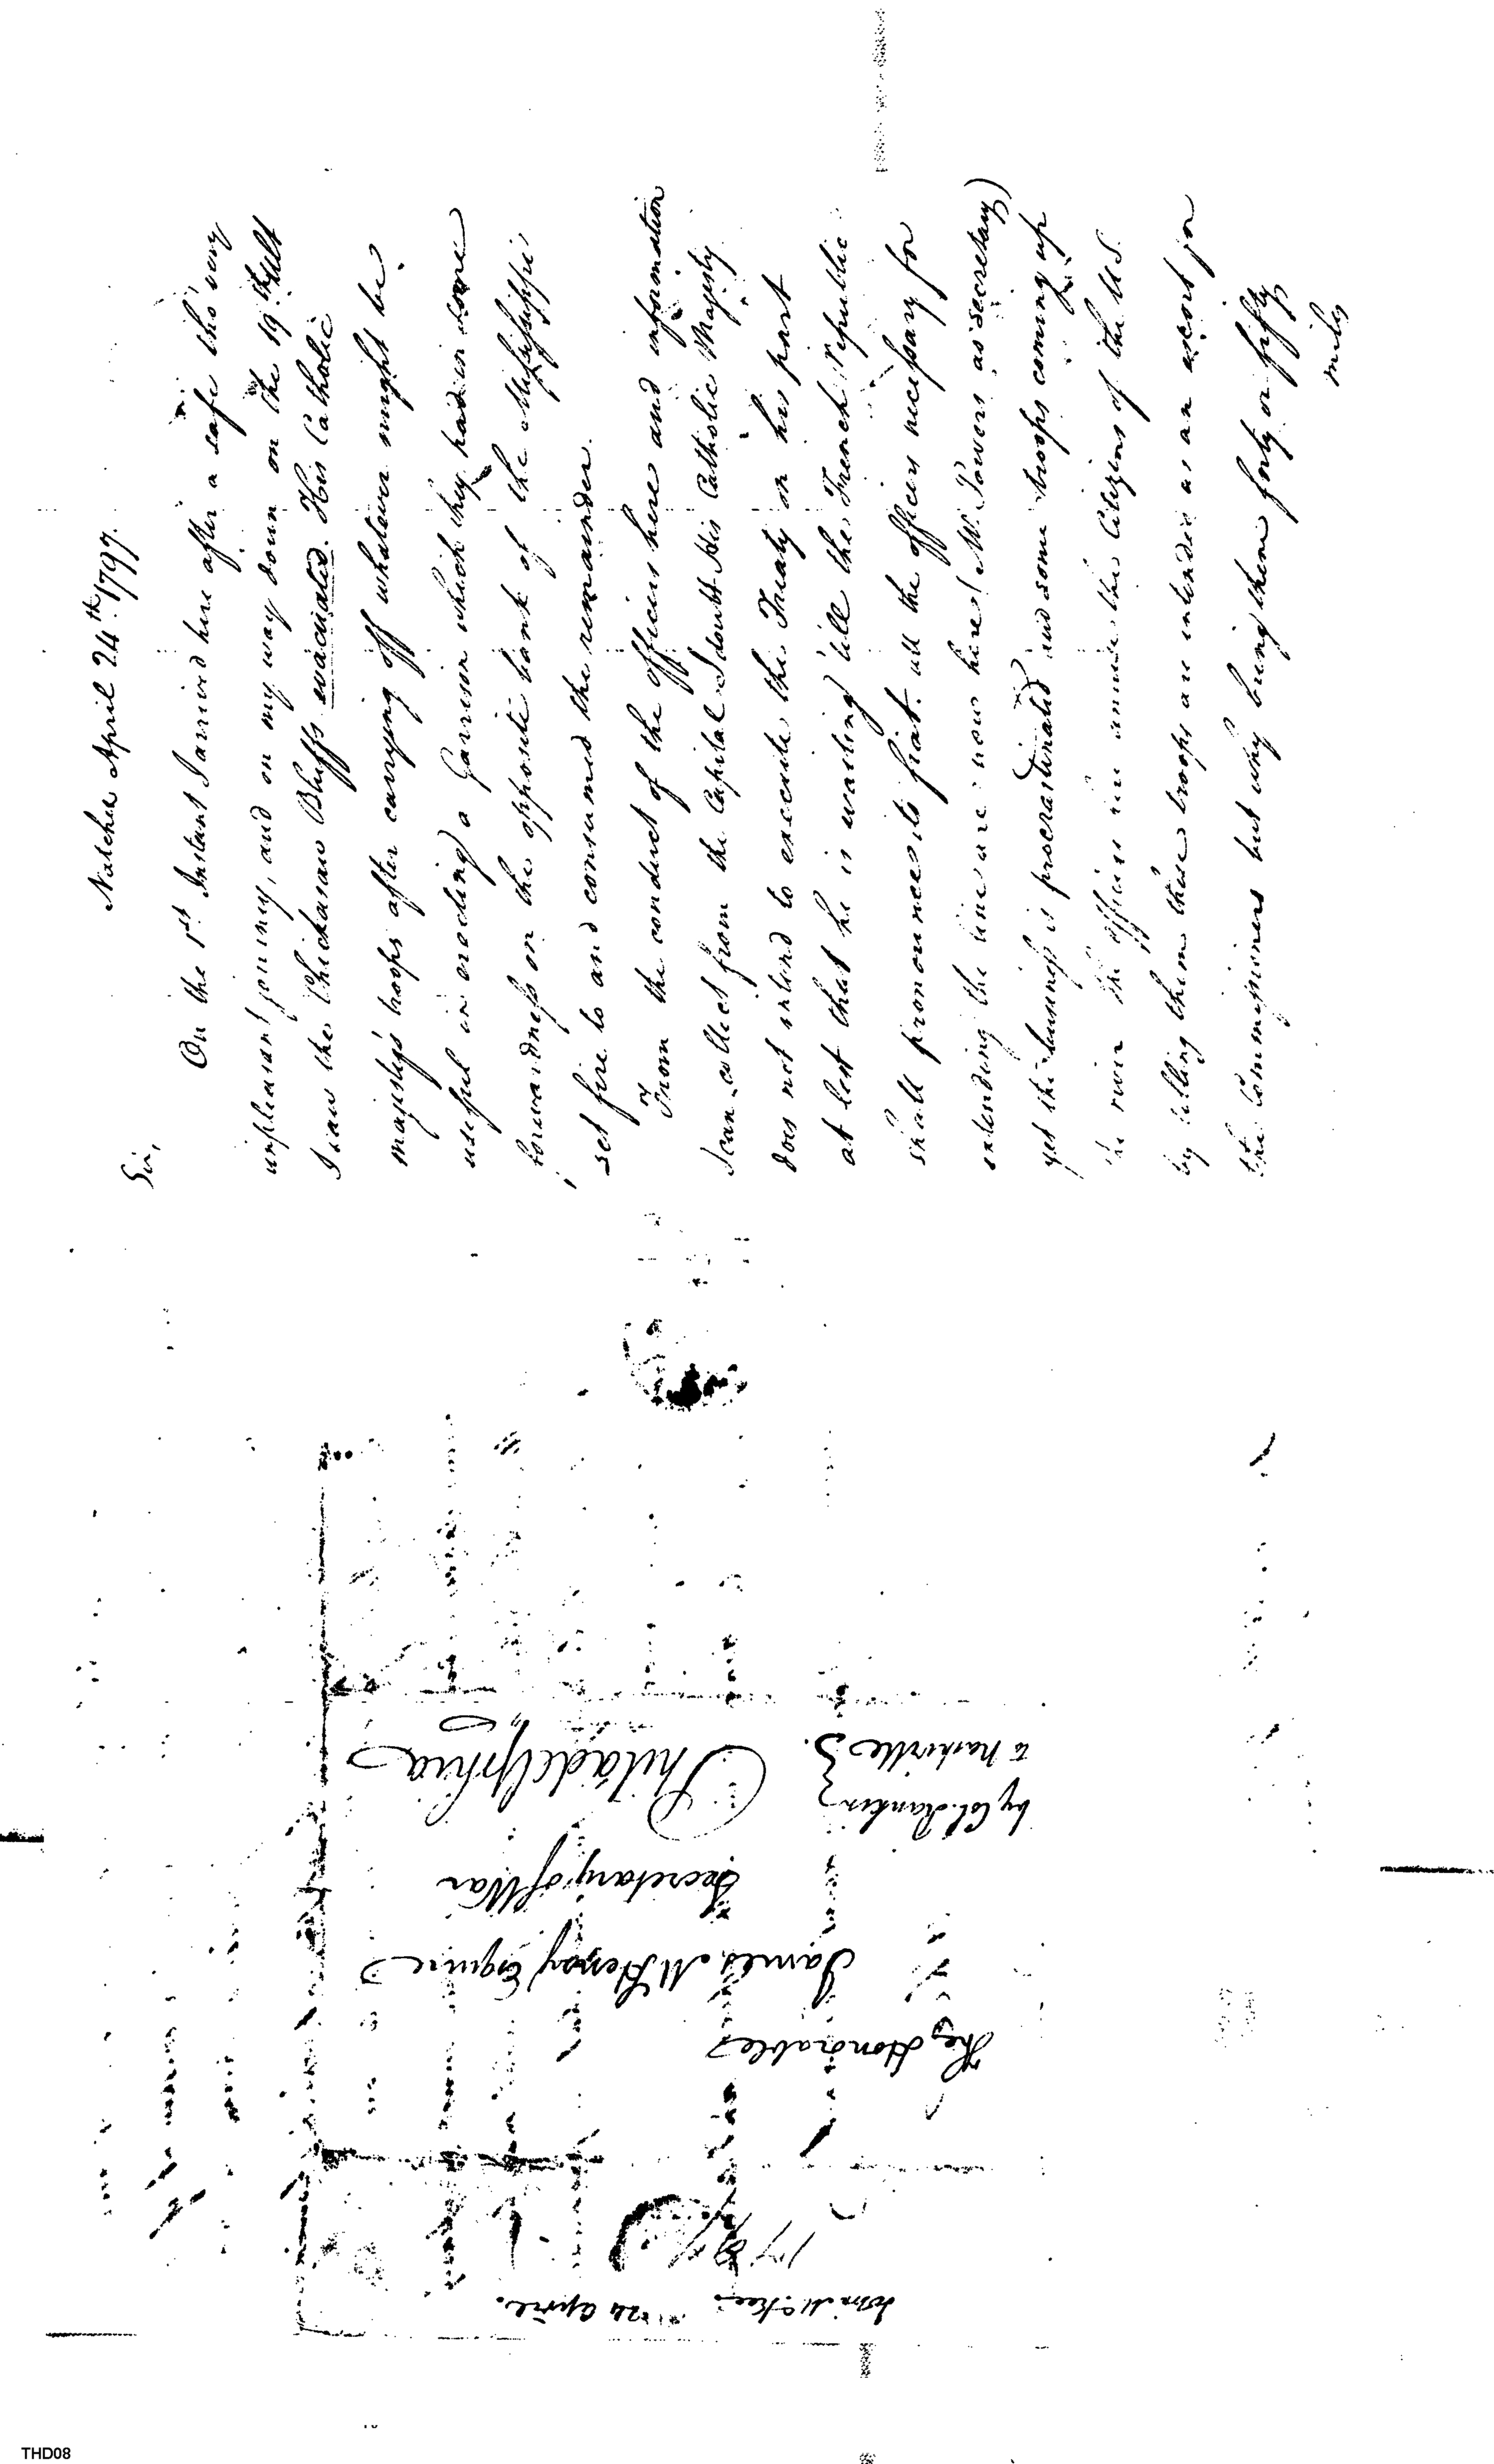 Natchez April 24th. 1797.
Sir,
On the 1st. Instant I arrived here after a safe tho' very
unpleasant journey, and on my way down on the 19th. Ult
I saw the Chickasaw Bluffs evacuated. His Catholic
majesty's troops after carrying off whatever might be
useful in erecting a Garrison which they had in some
forwardness on the opposite bank of the Mississippi
set fire to and consumed the remainder.
From the conduct of the officers here and information
I can collect from the Capital I doubt His Catholic Majesty
does not intend to execute the Treaty on his part
at lest that he is waiting till the French republic
shall pronounce its fiat. all the officers necessary for
extending the line are now here (Mr. Powers as secretary)
yet the business is procrastinated and some troops coming up
the river the officers here amuse the Citizens of the U.S.
by telling them these troops are intended as an escort for
the Commissioners but why bring them forty or fifty
miles
The Honorable
James McHenry Esquire
Secretary of War
Philadelphia
by Col. Rankin
to Nashville
John McKee
24 april.
1797
THD08